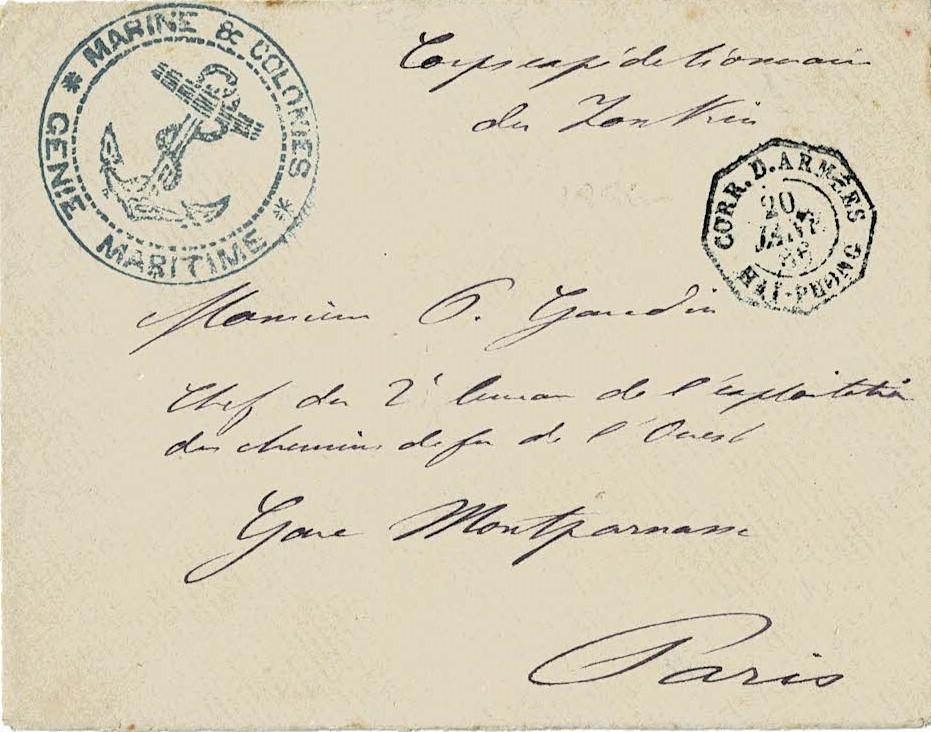 * MARINE & COLONIES *
GÉNIE MARITIME
Corps expéditionnaire
du Tonkin
CORR. D. ARMÉES
20
JANV.
HAÏ-PHONG
Monsieur Gaudin
Chef du 2e bureau de l'exploitation
des chemins de fer de l'Ouest
Gare Montparnasse
Paris